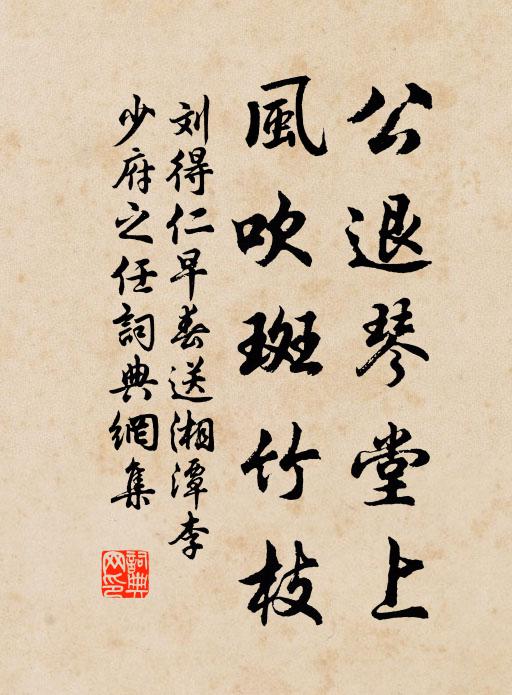 公退琴堂上
風吹斑竹枝
刘得仁早春送湘潭李
少府之任詞典網集
詞典
网印